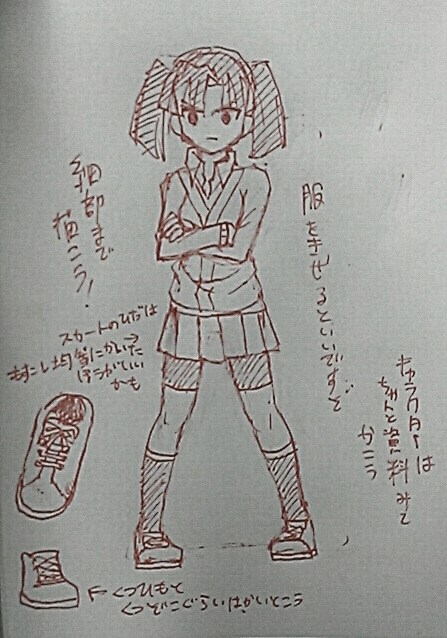 服をきせるといいですぞ
キャラクターは
ちゃんと資料みて
かこう
細部まで
描こう!
スカートのひだは
もすこし均等にかいた
ほうがいい
かも
くつひもと
くつぞこぐらいはかいとこう